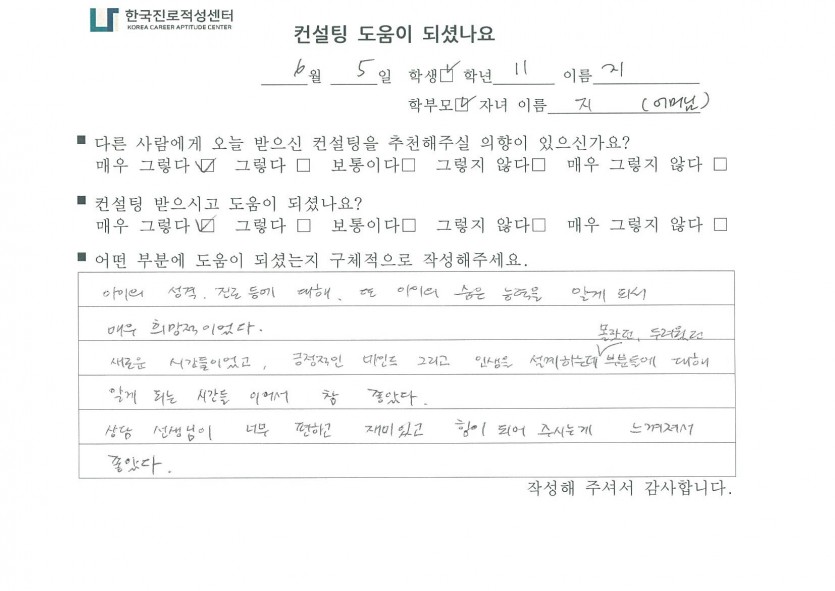 한국진로적성센터
KOREA CAREER APTITUDE CENTER
컨설팅 도움이 되셨나요
6월 5일 학생☑ 학년 11 이름 지
학부모☑ 자녀 이름 지 (어머님)
■ 다른 사람에게 오늘 받으신 컨설팅을 추천해주실 의향이 있으신가요?
매우 그렇다☑ 그렇다☐ 보통이다☐ 그렇지 않다☐ 매우 그렇지 않다☐
■ 컨설팅 받으시고 도움이 되셨나요?
매우 그렇다☑ 그렇다☐ 보통이다☐ 그렇지 않다☐ 매우 그렇지 않다☐
■ 어떤 부분에 도움이 되셨는지 구체적으로 작성해주세요.
아이의 성격, 진로 등에 대해, 또 아이의 숨은 능력을 알게 되서
매우 희망적이었다.
몰랐던, 두려웠던
새로운 시간들이었고, 긍정적인 마인드 그리고 인생을 설계하는데 부분들에 대해
알게 되는 시간들 이어서 참 좋았다.
상담 선생님이 너무 편하고 재미있고 힘이 되어 주시는게 느껴져서
좋았다.
작성해 주셔서 감사합니다.